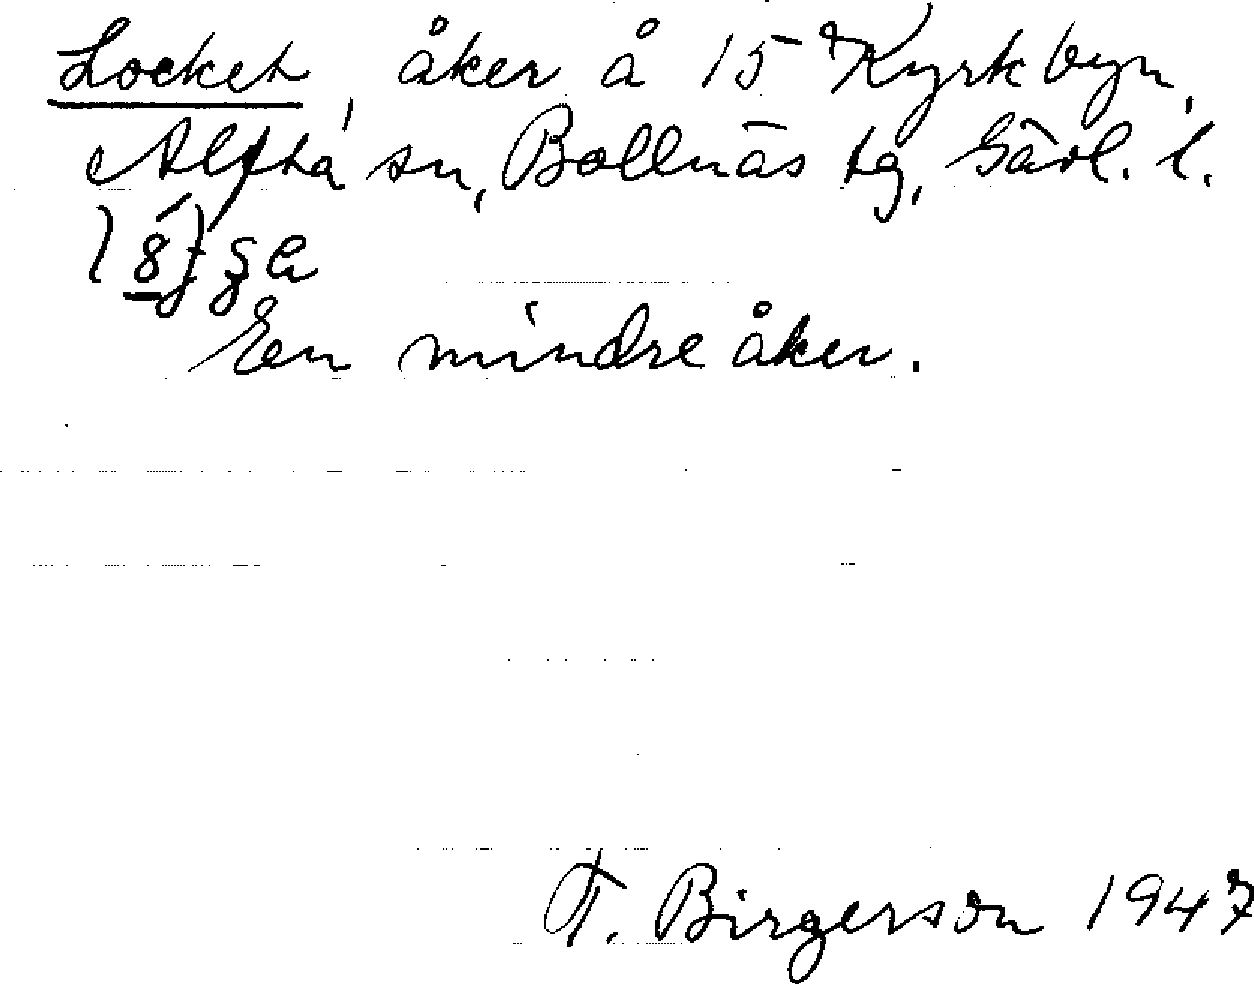 Locket, åker å 15 Kyrkbyn,
Alfta sn, Bollnäs tg, Gävl. l.
En mindre åker.
T. Birgerson 1947